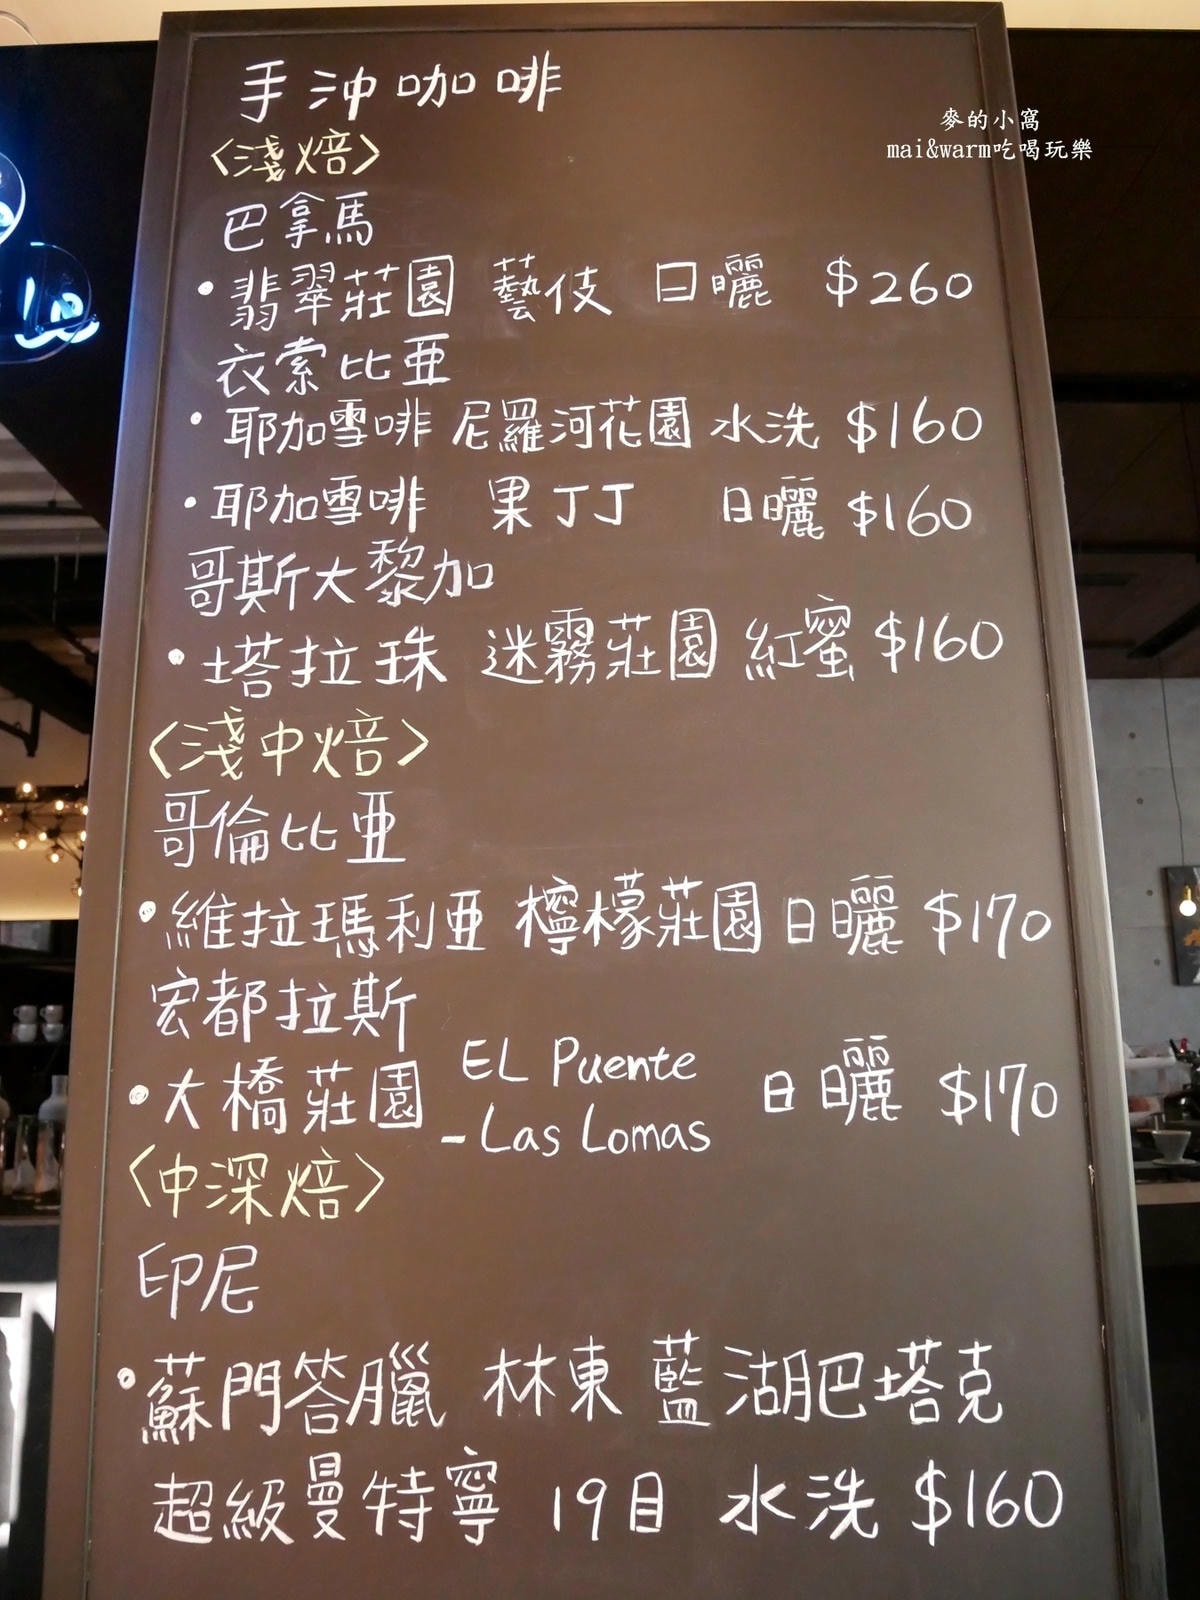 手沖咖啡
麥的小窩
mai&warm吃喝玩樂
〈淺焙〉
巴拿馬
•翡翠莊園 藝伎 日曬 $260
衣索比亞
•耶加雪啡 尼羅河花園 水洗 $160
•耶加雪啡 果丁丁 日曬 $160
哥斯大黎加
•塔拉珠 迷霧莊園 紅蜜 $160
〈淺中焙〉
哥倫比亞
•維拉瑪利亞 檸檬莊園 日曬 $170
宏都拉斯
•大橋莊園 EL Puente
-Las Lomas 日曬 $170
〈中深焙〉
印尼
•蘇門答臘 林東 藍湖巴塔克
超級曼特寧 19目 水洗 $160